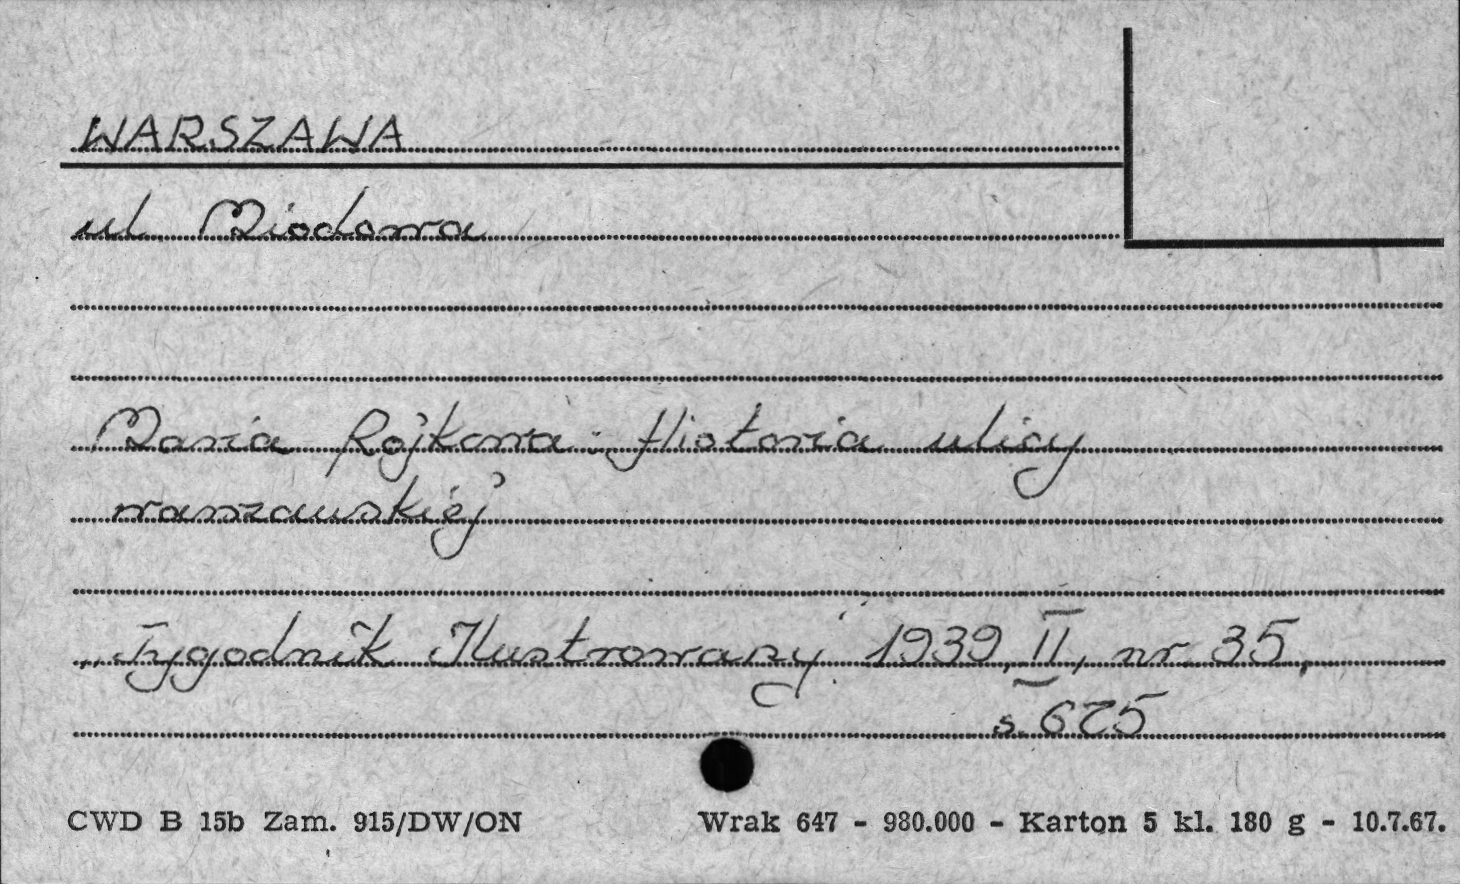 WARSZAWA
ul. Miodowa
Maria Rojkowa: Historia ulicy
warszawskiej
"Tygodnik Ilustrowany" 1939, II, nr 35,
s. 675
CWD B 15b Zam. 915/DW/ON Wrak 647 - 980.000 - Karton 5 kl. 180 g - 10.7.67.